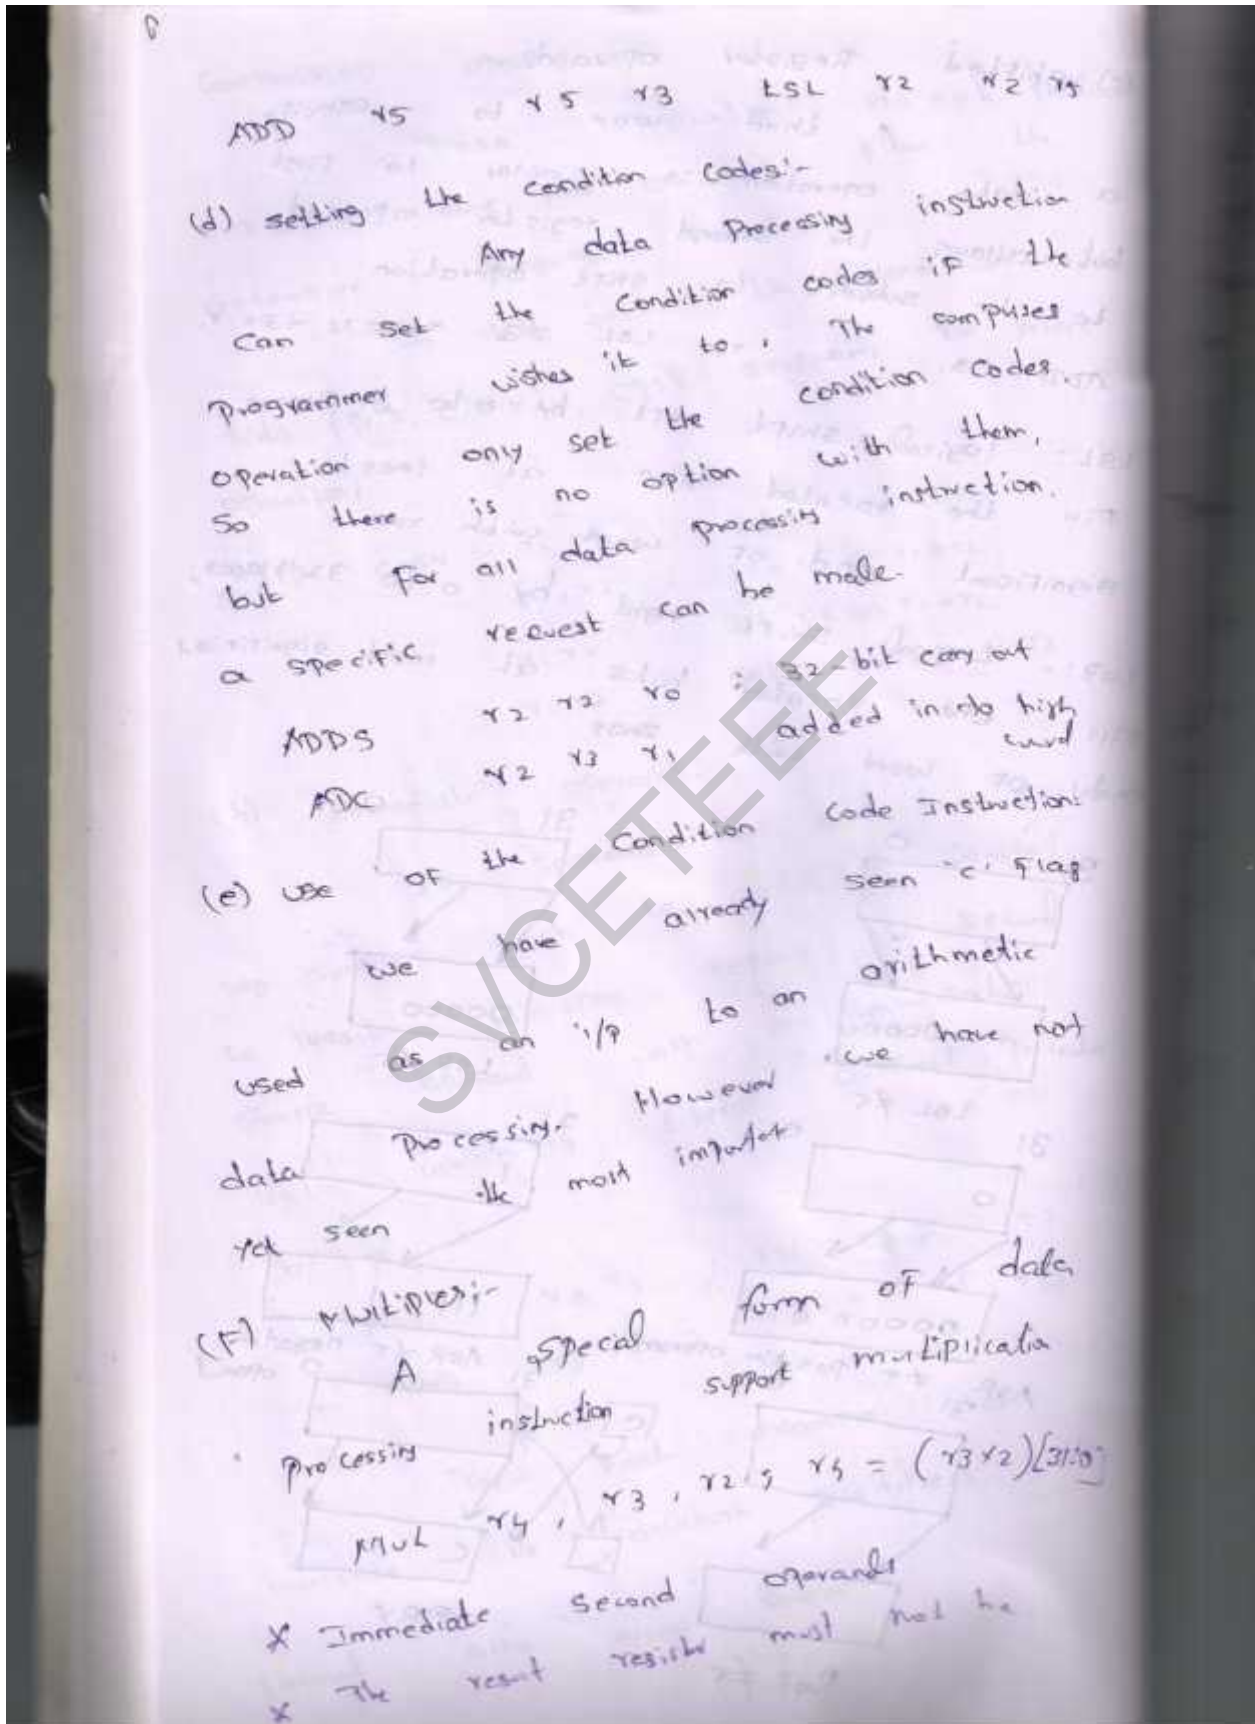 ADD r5 r5 r3 LSL r2 r2
(d) setting the condition codes:-
Any data Processing instruction
can set the condition codes if the
Programmer wishes it to. The compuses
operation only set the condition codes
so there is no option with them,
but For all data processing instruction.
a specific request can be made.
ADDS r2 r2 r0 ; 32-bit carry out
ADC r2 r3 r1 added into high
word
(e) use of the Condition code Instruction:
we have already seen 'c' flag
used as an i/p to an arithmetic
data Processing. However we have not
yet seen the most important
(F) Multiples:-
A special form of data
Processing instruction support multiplication
MUL r4, r3, r2 ; r4 = (r3xr2)[31:0]
* Immediate second operands
* The result register must not be
SVCETEEE